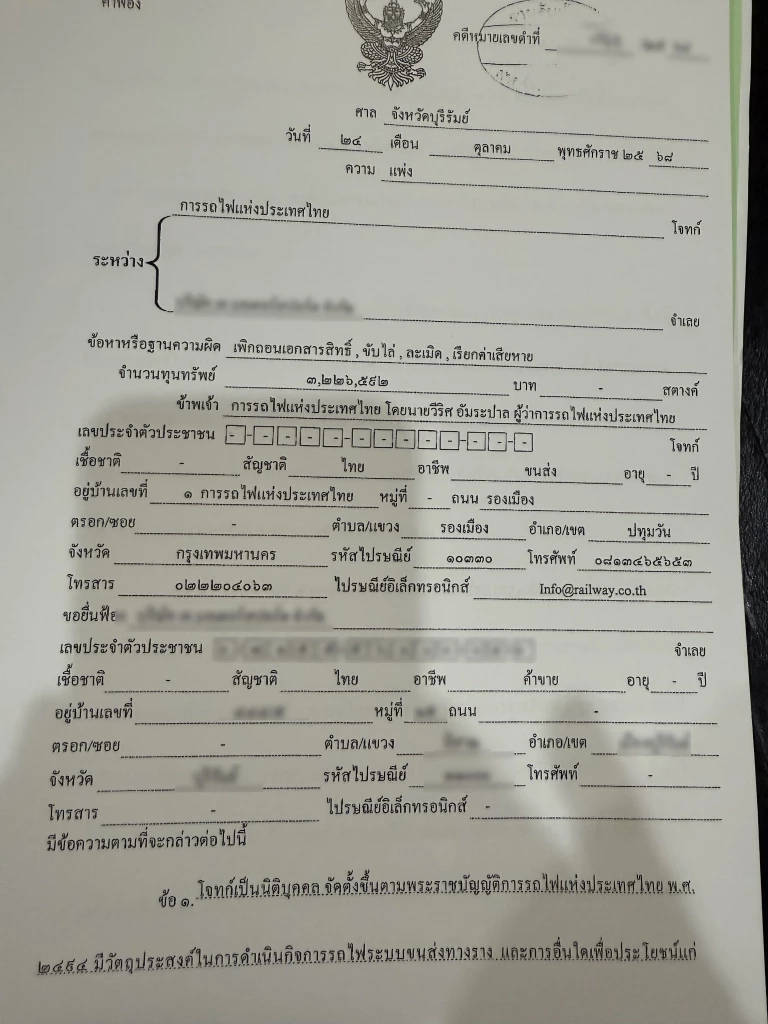 คำฟ้อง
คดีหมายเลขดำที่
ศาล จังหวัดบุรีรัมย์
วันที่ ๒๔ เดือน ตุลาคม พุทธศักราช ๒๕ ๖๘
ความ แพ่ง
การรถไฟแห่งประเทศไทย โจทก์
ระหว่าง
จำเลย
ข้อหาหรือฐานความผิด เพิกถอนเอกสารสิทธิ์ , ขับไล่ , ละเมิด , เรียกค่าเสียหาย
จำนวนทุนทรัพย์ ๓,๒๒๖,๕๙๒ บาท - สตางค์
ข้าพเจ้า การรถไฟแห่งประเทศไทย โดยนายวีริศ อัมระปาล ผู้ว่าการรถไฟแห่งประเทศไทย
เลขประจำตัวประชาชน - - - - - - - - - - - - - โจทก์
เชื้อชาติ - สัญชาติ ไทย อาชีพ ขนส่ง อายุ - ปี
อยู่บ้านเลขที่ ๑ การรถไฟแห่งประเทศไทย หมู่ที่ - ถนน รองเมือง
ตรอก/ซอย - ตำบล/แขวง รองเมือง อำเภอ/เขต ปทุมวัน
จังหวัด กรุงเทพมหานคร รหัสไปรษณีย์ ๑๐๓๓๐ โทรศัพท์ ๐๘๑๓๔๖๕๖๕๓
โทรสาร ๐๒๒๒๐๔๐๖๓ ไปรษณีย์อิเล็กทรอนิกส์ Info@railway.co.th
ขอยื่นฟ้อง
เลขประจำตัวประชาชน จำเลย
เชื้อชาติ - สัญชาติ ไทย อาชีพ ค้าขาย อายุ - ปี
อยู่บ้านเลขที่ หมู่ที่ ถนน -
ตรอก/ซอย - ตำบล/แขวง อำเภอ/เขต
จังหวัด รหัสไปรษณีย์ โทรศัพท์ -
โทรสาร - ไปรษณีย์อิเล็กทรอนิกส์ -
มีข้อความตามที่จะกล่าวต่อไปนี้
ข้อ ๑. โจทก์เป็นนิติบุคคล จัดตั้งขึ้นตามพระราชบัญญัติการรถไฟแห่งประเทศไทย พ.ศ.
๒๔๙๔ มีวัตถุประสงค์ในการดำเนินกิจการรถไฟระบบขนส่งทางราง และการอื่นใดเพื่อประโยชน์แก่